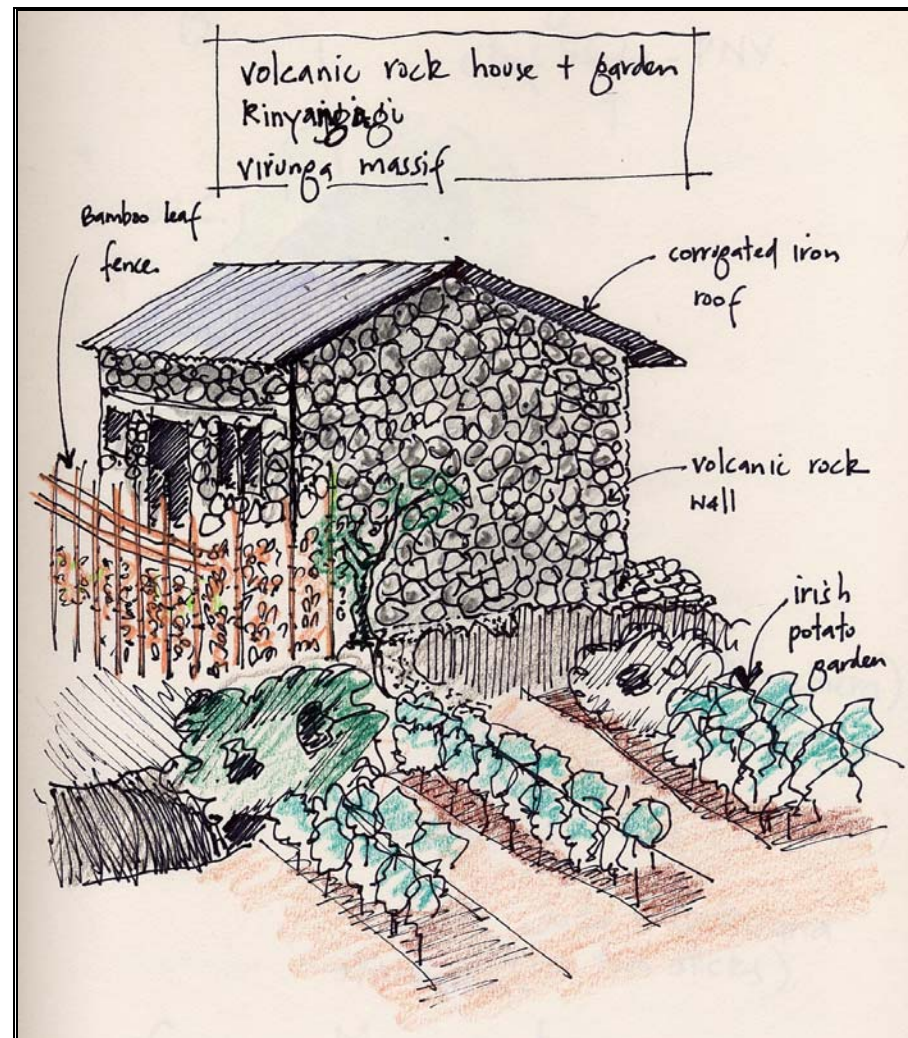 volcanic rock house + garden
virunga massif
Bamboo leaf
fence.
corrogated iron
roof
volcanic rock
wall
irish
potato
garden